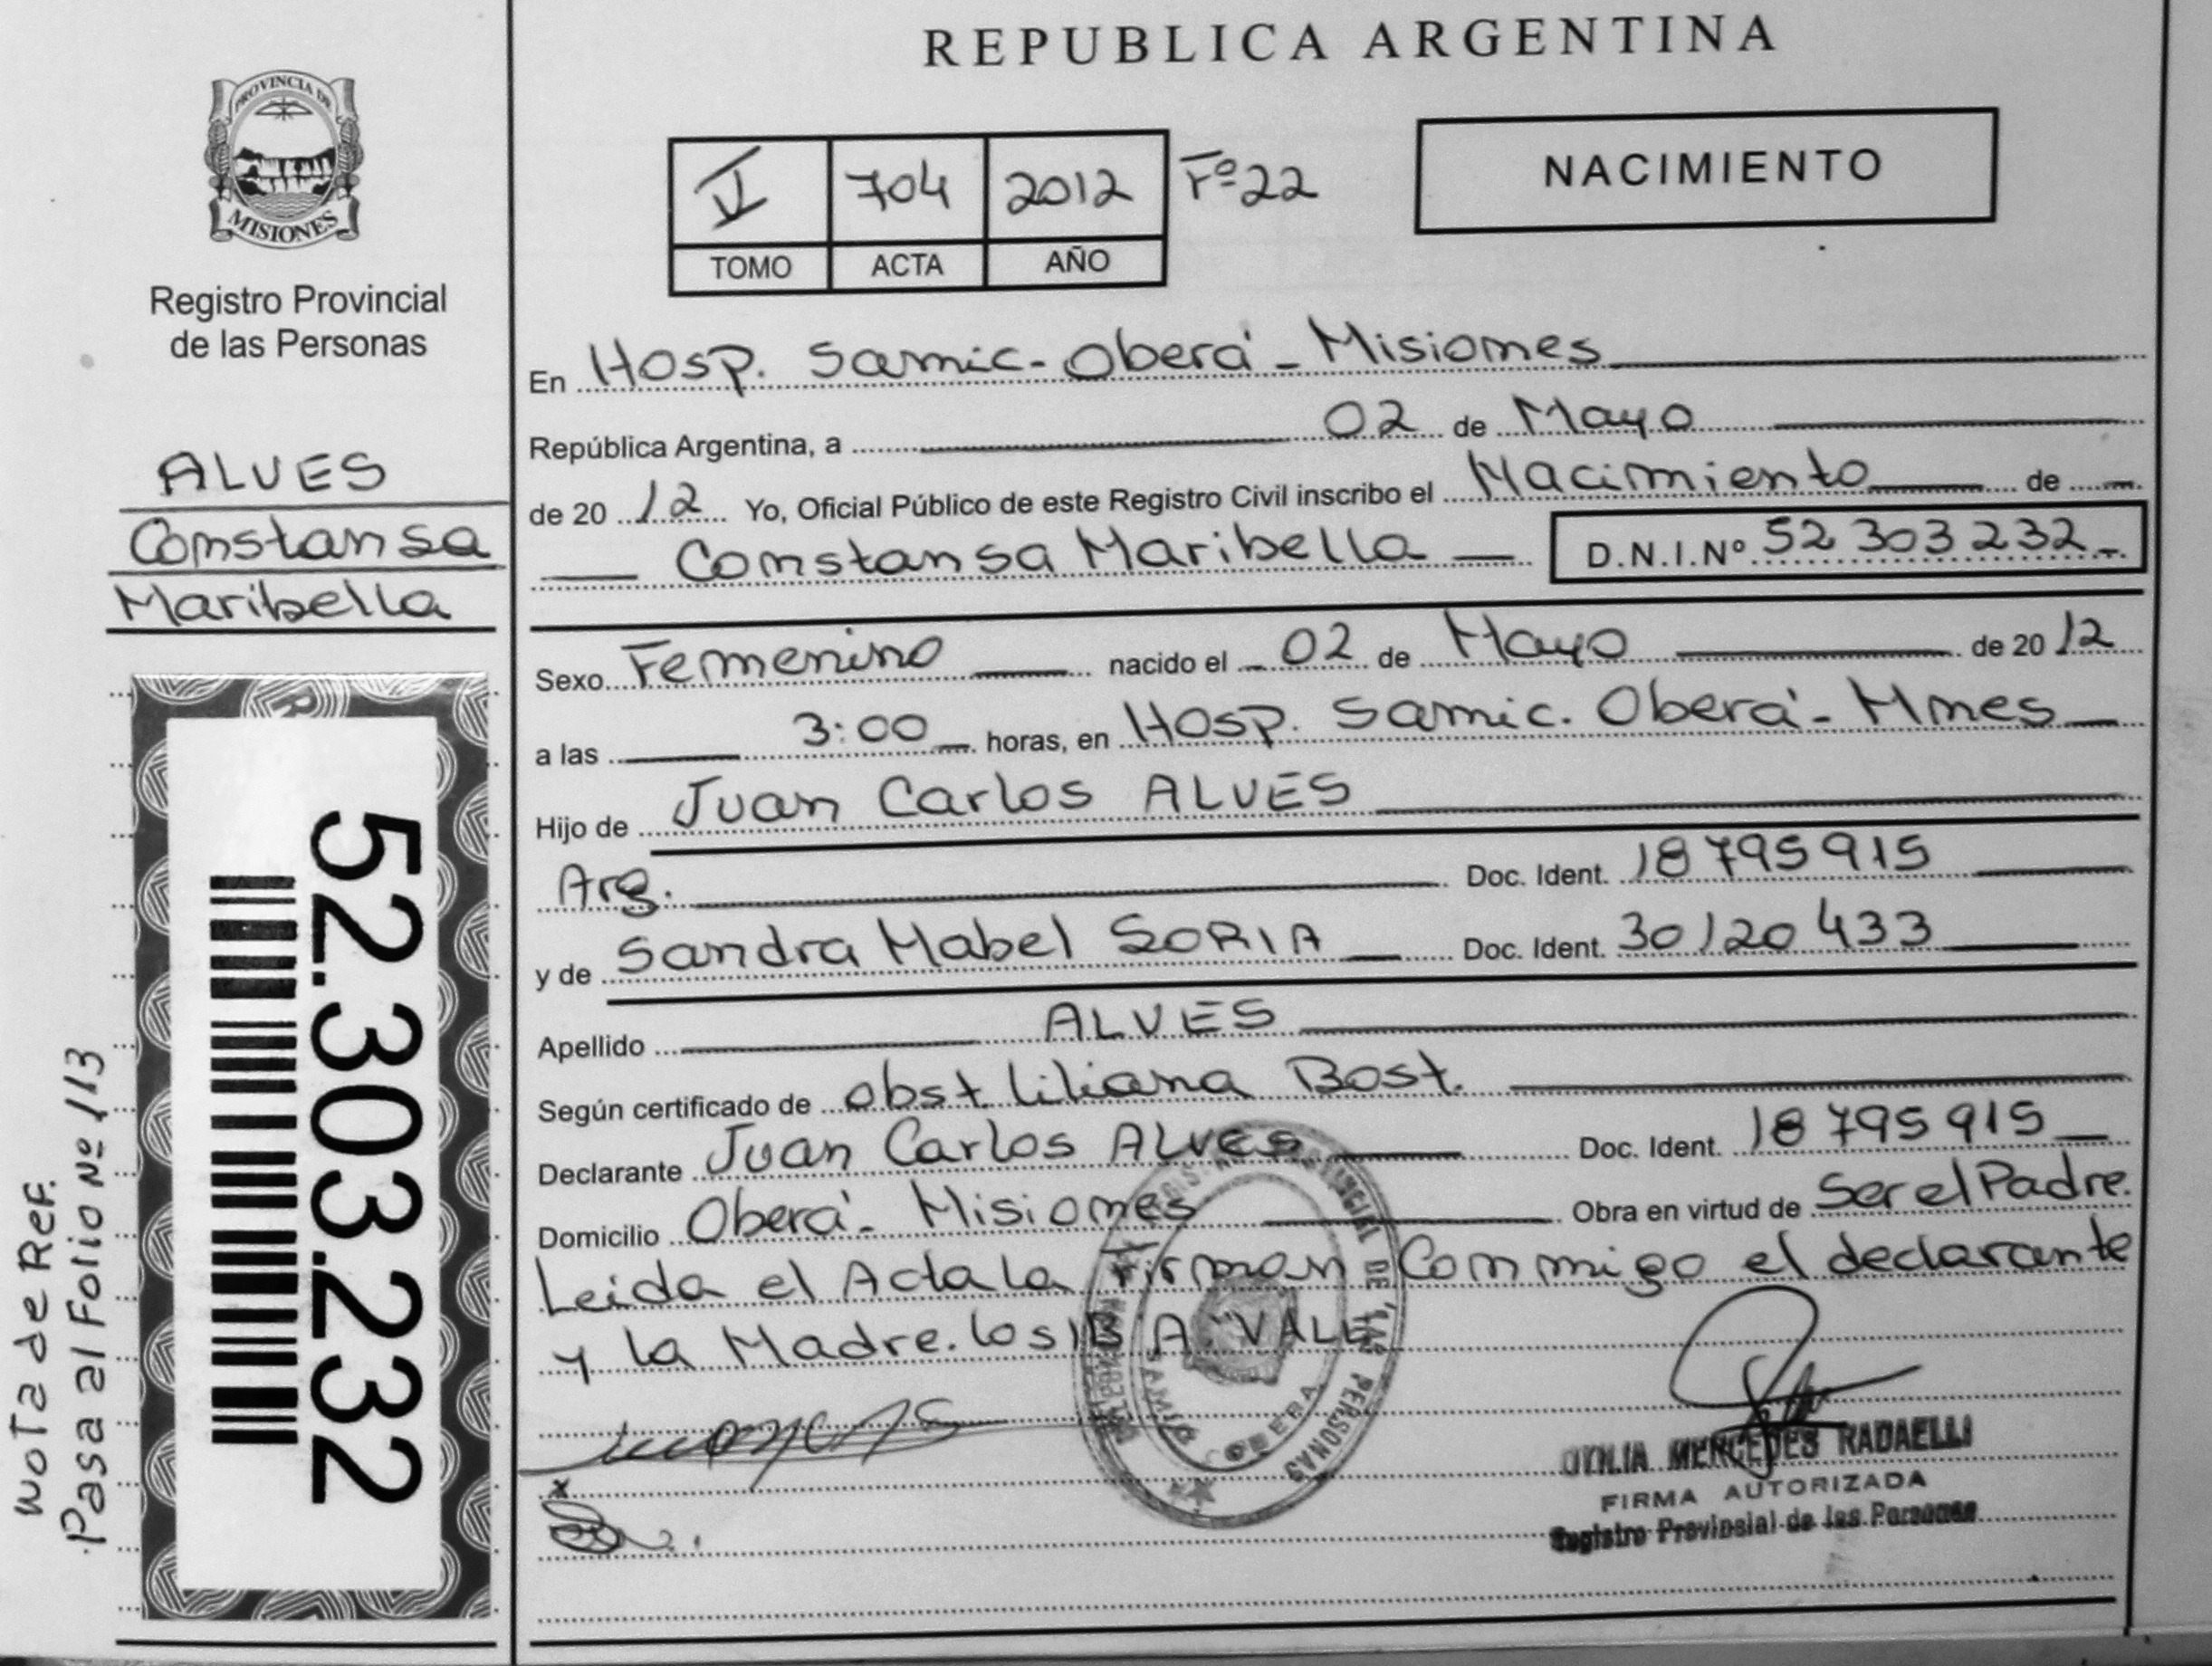 REPUBLICA ARGENTINA
PROVINCIA DE
MISIONES
Registro Provincial
de las Personas
ALVES
Constansa
Maribella
52.303.232
Nota de Ref.
Pasa al Folio Nº 113
V 704 2012 Fº 22
TOMO ACTA AÑO
NACIMIENTO
En Hosp. Samic - Oberá - Misiones
República Argentina, a 02 de Mayo
de 2012 Yo, Oficial Público de este Registro Civil inscribo el Nacimiento de
Constansa Maribella D.N.I.Nº 52 303 232
Sexo Femenino nacido el 02 de Mayo de 2012
a las 3:00 horas, en Hosp. Samic. Oberá - Mnes
Hijo de Juan Carlos ALVES
Arg. Doc. Ident. 18 795 915
y de Sandra Mabel SORIA Doc. Ident. 30 120 433
Apellido ALVES
Según certificado de obst. Liliana Bost.
Declarante Juan Carlos Alves Doc. Ident. 18 795 915
Domicilio Oberá - Misiones Obra en virtud de Ser el Padre.
Leida el Acta la Firman Conmigo el declarante
y la Madre. los
DE LAS PERSONAS
SAMIC OBERA
MERCEDES RADAELLI
FIRMA AUTORIZADA
Registro Provincial de las Personas